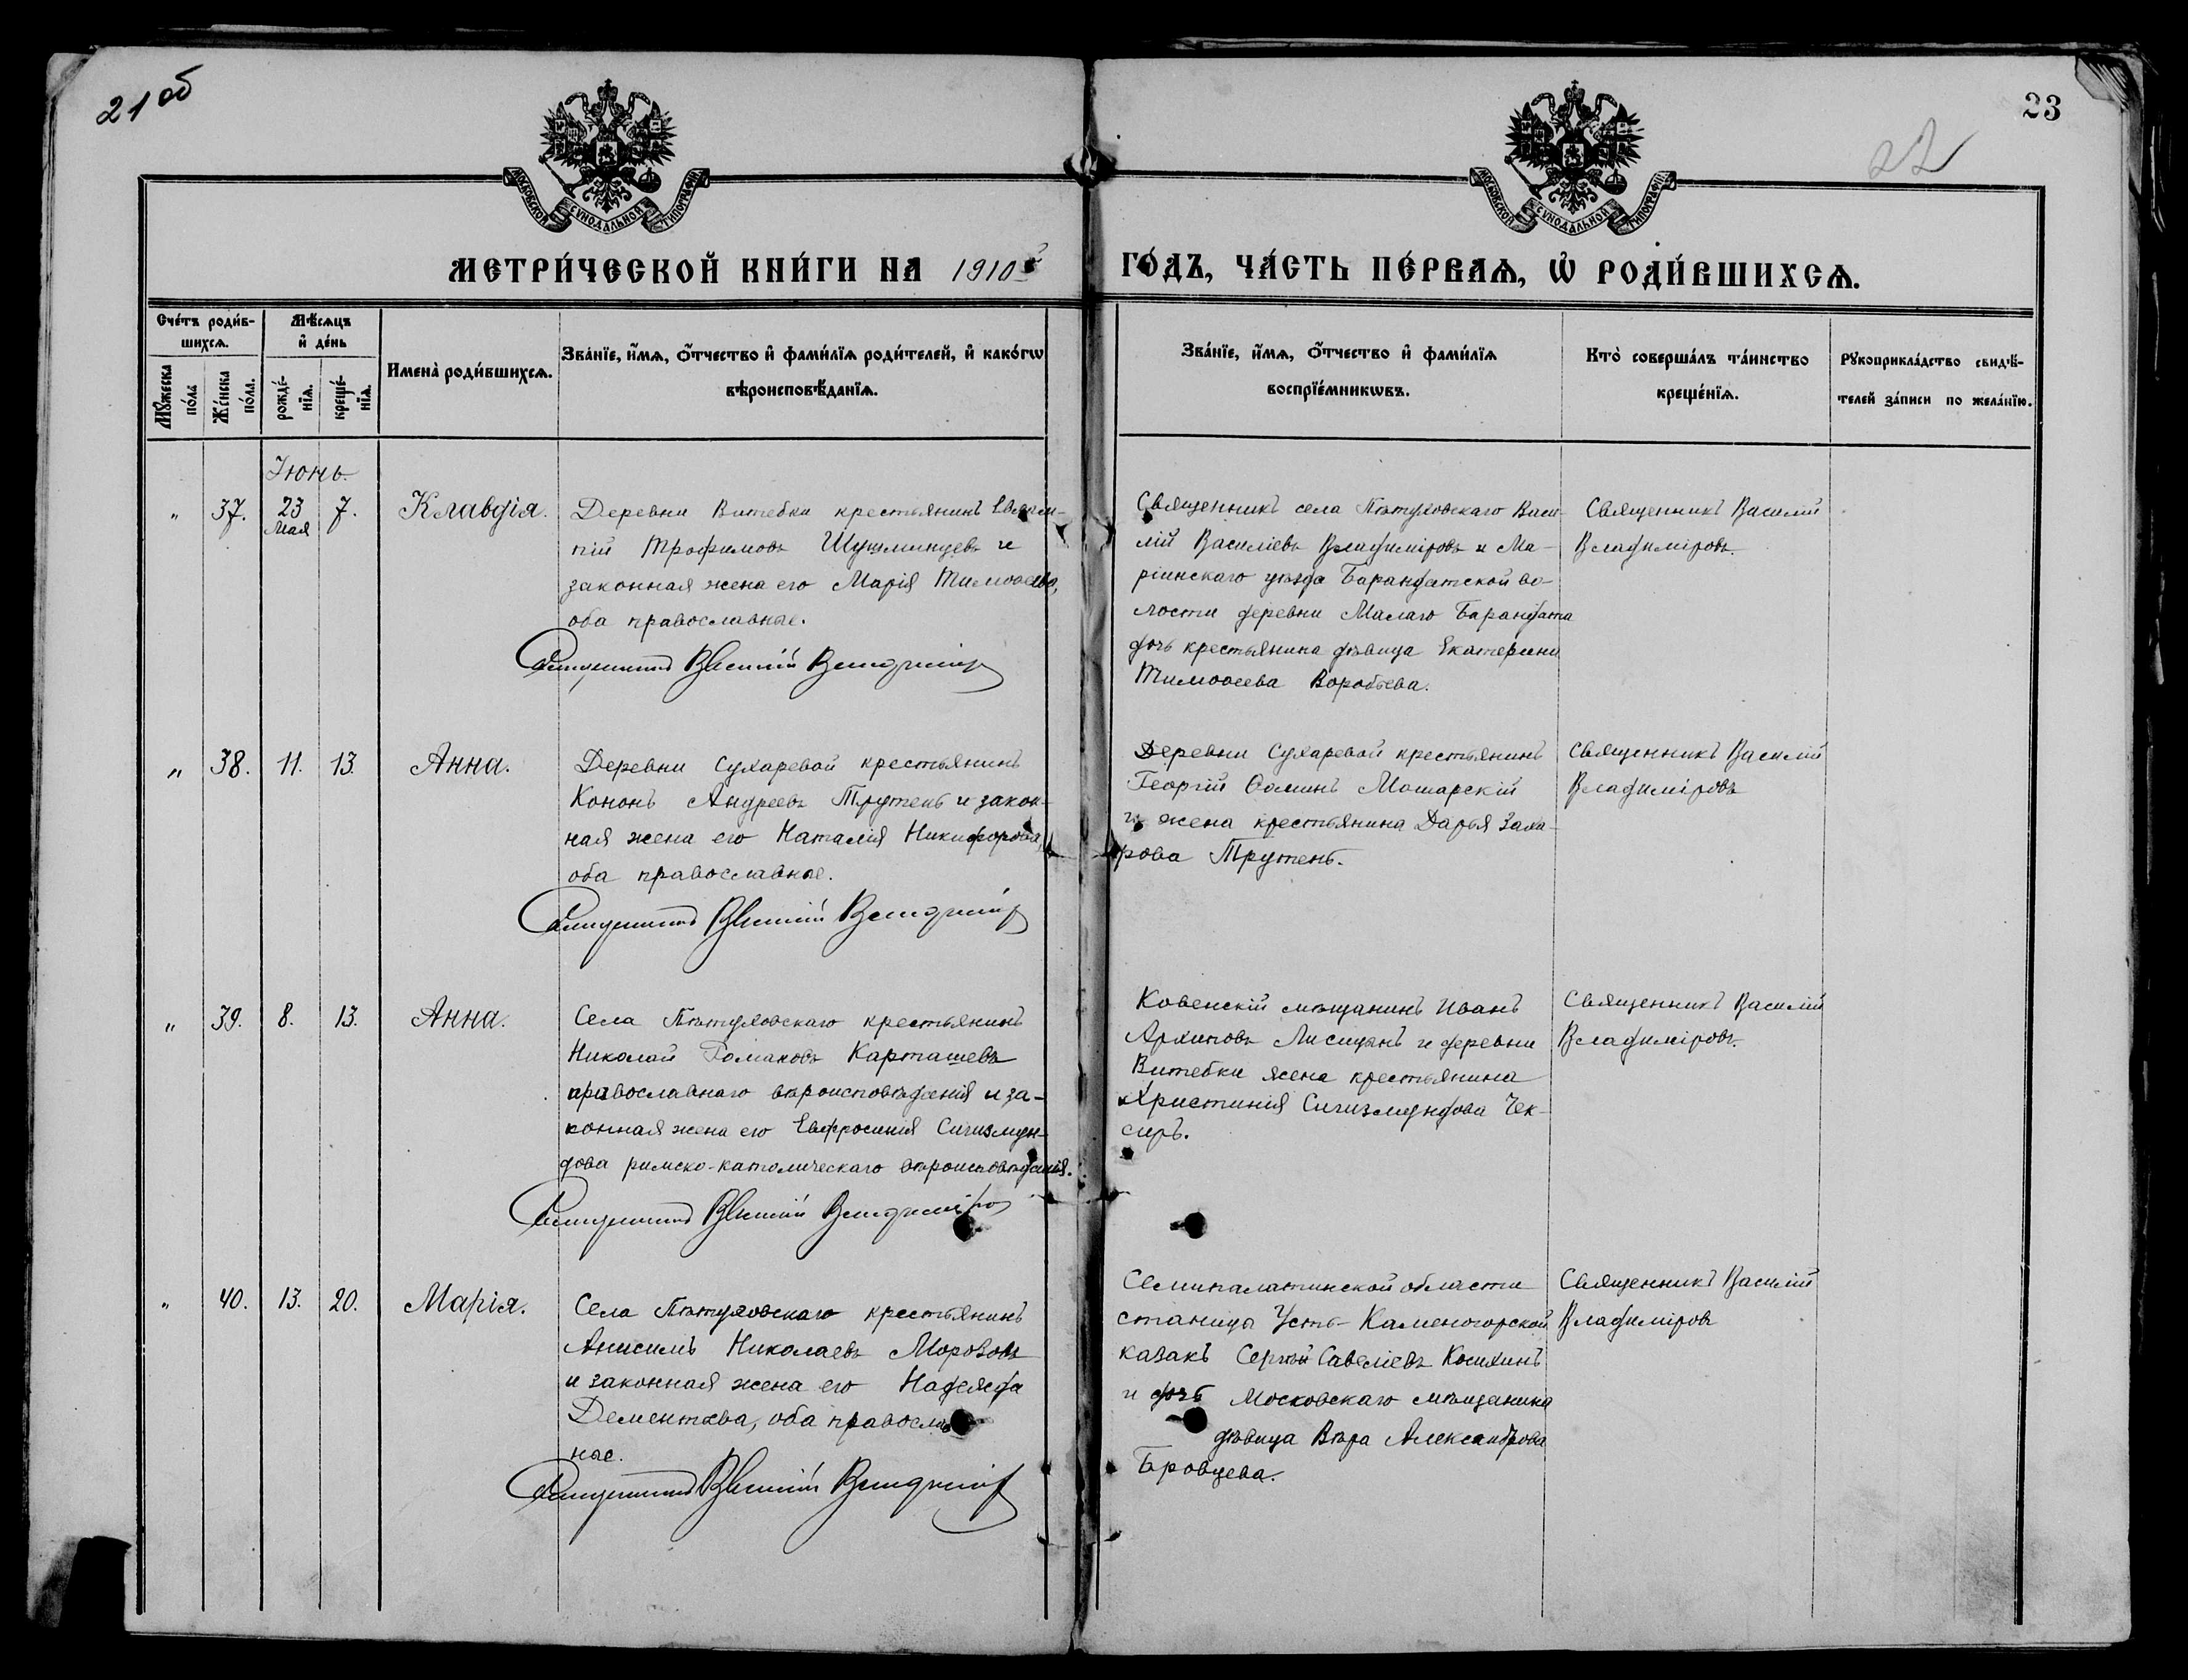 21 об
23
22
МОСКОВСКОЙ СУНОДАЛЬНОЙ ТИПОГРАФІИ
МОСКОВСКОЙ СУНОДАЛЬНОЙ ТИПОГРАФІИ
МЕТРИ́ЧЕСКОЙ КНИ́ГИ НА 1910й
ГО́ДЪ, ЧА́СТЬ ПЕ́РВАѦ, Ѽ РОДИ́ВШИХСѦ.
Сче́тъ роди́в-
шихсѧ.
Мꙋ́жеска
по́ла
Же́нска
по́ла.
Мѣ́сѧцъ
и҆ де́нь
рожде́-
нїѧ.
креще́-
нїѧ.
Имена̀ роди́вшихсѧ.
Зва́нїе, и҆́мѧ, ѻ҆́тчество и҆ фами́лїѧ роди́телей, и҆ како́гѡ
вѣроисповѣ́данїѧ.
Зва́нїе, и҆́мѧ, ѻ҆́тчество и҆ фами́лїѧ
воспрїе́мникѡвъ.
Кто̀ соверша́лъ та́инство
креще́нїѧ.
Рꙋкоприкла́дство свидѣ́-
телей за́писи по жела́нїю.
Іюнь.
„ 37. 23 Мая 7. Клавдія.
Деревни Витебки крестьянинъ Евлам-
пій Трофимовъ Шушминцевъ и
законная жена его Марія Тимоѳеева,
оба православные.
Священникъ Василій Владиміровъ
Священникъ села Пѣтуховскаго Васи-
лій Василіевъ Владиміровъ и Ма-
ріинскаго уѣзда Барандатской во-
лости деревни Малаго Барандата
дочь крестьянина дѣвица Екатерина
Тимоѳеева Воробьева.
Священникъ Василій
Владиміровъ.
„ 38. 11. 13. Анна.
Деревни Сухаревой крестьянинъ
Кононъ Андреевъ Трутень и закон-
ная жена его Наталія Никифорова,
оба православные.
Священникъ Василій Владиміровъ
Деревни Сухаревой крестьянинъ
Георгій Ѳоминъ Мошарскій
и жена крестьянина Дарья Заха-
рова Трутень.
Священникъ Василій
Владиміровъ
„ 39. 8. 13. Анна.
Села Пѣтуховскаго крестьянинъ
Николай Романовъ Карташевъ
православнаго вѣроисповѣданія и за-
конная жена его Евфросинія Сигизмун-
дова римско-католическаго вѣроисповѣданія.
Священникъ Василій Владиміровъ
Ковенскій мѣщанинъ Иванъ
Архиповъ Лисицынъ и деревни
Витебки жена крестьянина
Христинія Сигизмундова Чек-
сиръ.
Священникъ Василій
Владиміровъ.
„ 40. 13. 20. Марія.
Села Пѣтуховскаго крестьянинъ
Анисимъ Николаевъ Морозовъ
и законная жена его Надежда
Дементьева, оба православ
ные.
Священникъ Василій Владиміровъ
Семипалатинской области
станицы Усть-Каменогорской
казакъ Сергѣй Савеліевъ Косихинъ
и дочь Московскаго мѣщанина
дѣвица Вѣра Александрова
Бровцева.
Священникъ Василій
Владиміровъ